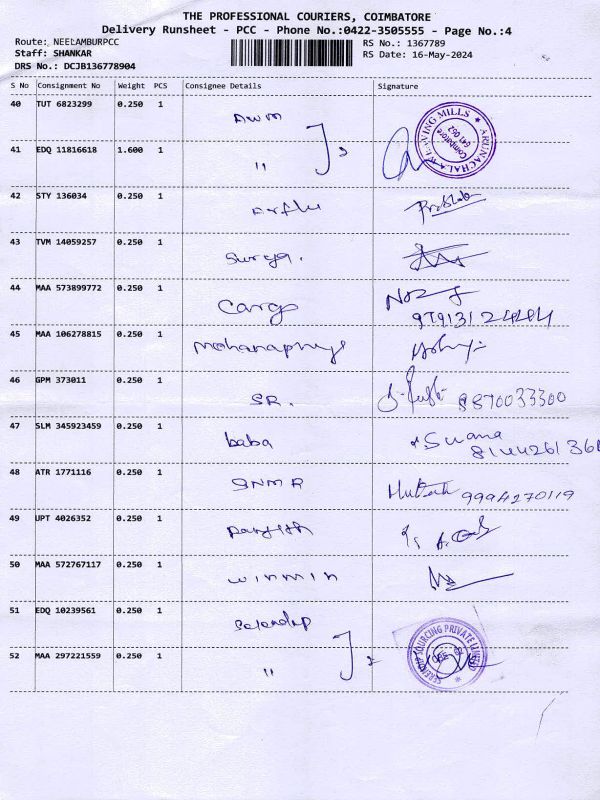 THE PROFESSIONAL COURIERS, COIMBATORE
Delivery Runsheet - PCC - Phone No.:0422-3505555 - Page No.:4
Route: NEELAMBURPCC
RS No.: 1367789
Staff: SHANKAR
RS Date: 16-May-2024
DRS No.: DCJB136778904
S No Consignment No Weight PCS Consignee Details Signature
40 TUT 6823299 0.250 1 AWM
ARUNACHALA WEAVING MILLS Coimbatore 641 062
41 EDQ 11816618 1.600 1 " 2
42 STY 136034 0.250 1
43 TVM 14059257 0.250 1 Surya.
44 MAA 573899772 0.250 1 Cargo
45 MAA 106278815 0.250 1
46 GPM 373011 0.250 1 SR. 8870033300
47 SLM 345923459 0.250 1 baba
48 ATR 1771116 0.250 1 SNMR 9994270119
49 UPT 4026352 0.250 1
50 MAA 572767117 0.250 1 winmin
51 EDQ 10239561 0.250 1
SOURCING PRIVATE LIMITED
52 MAA 297221559 0.250 1 " 2